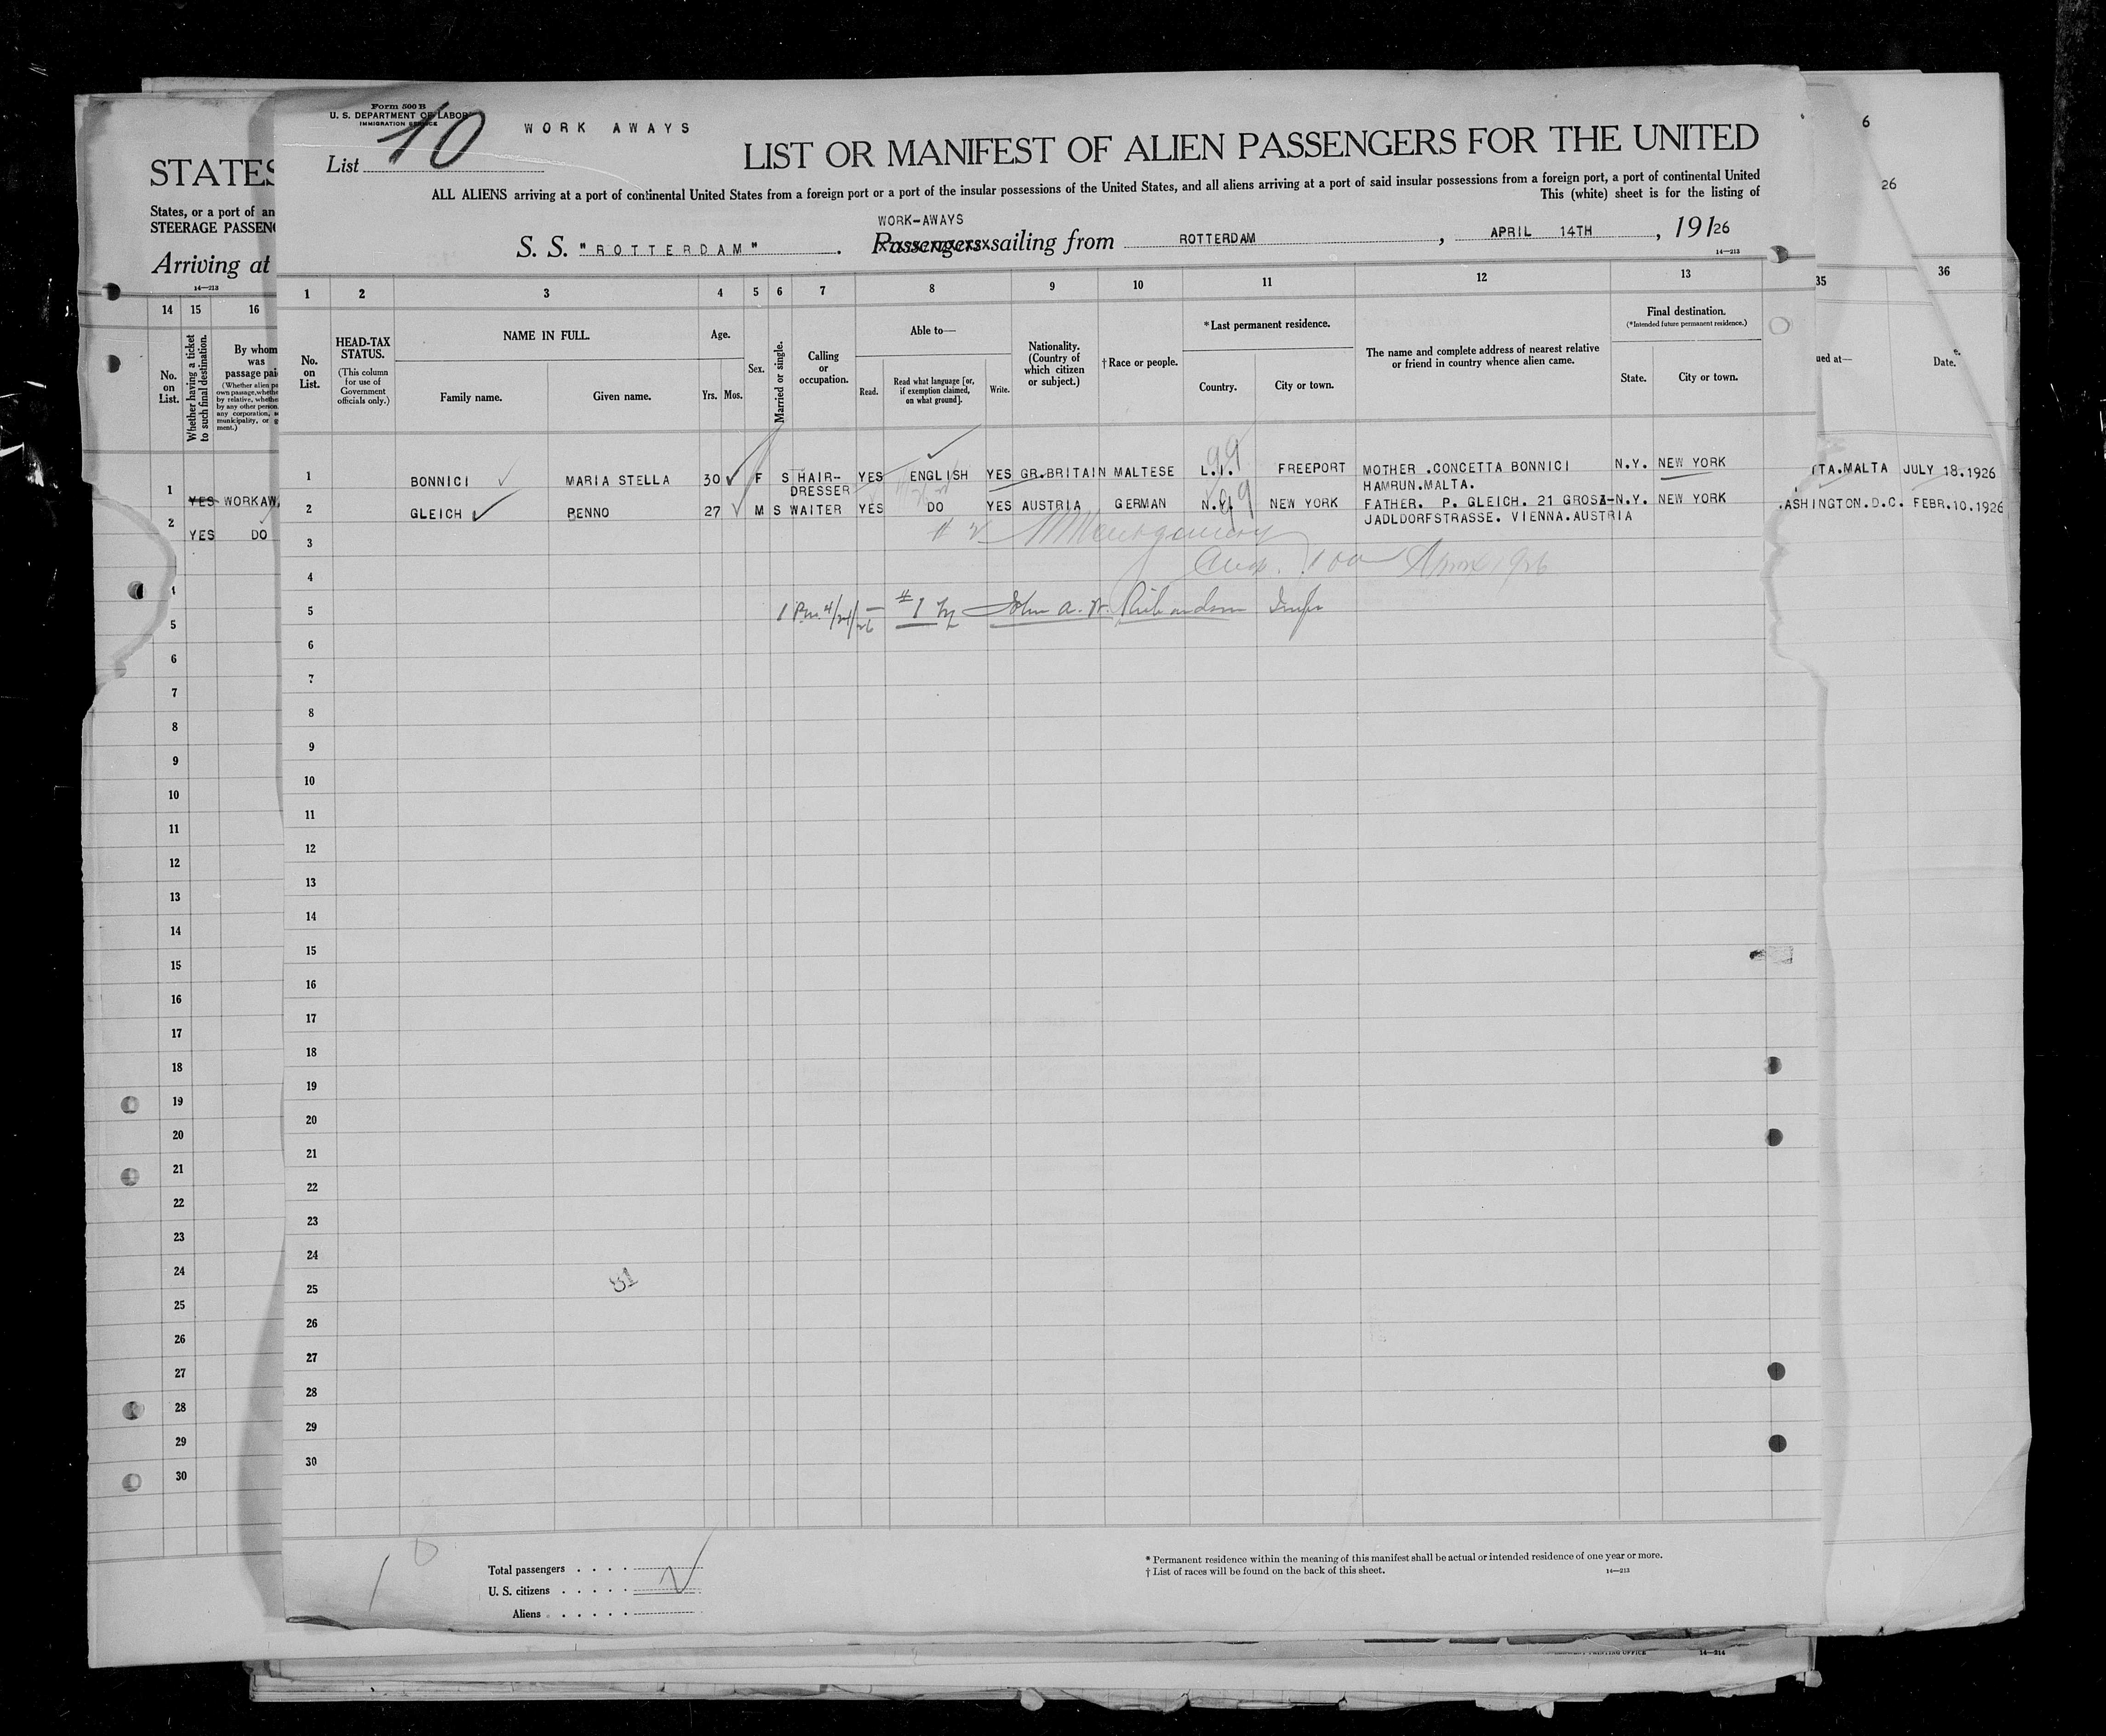 Form 500 B
U. S. DEPARTMENT OF LABOR
IMMIGRATION SERVICE
List 10
WORK AWAYS
LIST OR MANIFEST OF ALIEN PASSENGERS FOR THE UNITED
ALL ALIENS arriving at a port of continental United States from a foreign port or a port of the insular possessions of the United States, and all aliens arriving at a port of said insular possessions from a foreign port, a port of continental United
This (white) sheet is for the listing of
WORK-AWAYS
S. S. "ROTTERDAM". Passengers sailing from ROTTERDAM, APRIL 14TH, 19126
14—213
1 2 3 4 5 6 7 8 9 10 11 12 13
No. on List.
HEAD-TAX STATUS.
(This column for use of Government officials only.)
NAME IN FULL.
Family name. Given name.
Age.
Yrs. Mos.
Sex.
Married or single.
Calling or occupation.
Able to—
Read. Read what language [or, if exemption claimed, on what ground]. Write.
Nationality. (Country of which citizen or subject.)
†Race or people.
*Last permanent residence.
Country. City or town.
The name and complete address of nearest relative or friend in country whence alien came.
Final destination.
(*Intended future permanent residence.)
State. City or town.
1 BONNICI MARIA STELLA 30 F S HAIR-DRESSER YES ENGLISH YES GR.BRITAIN MALTESE L.I. FREEPORT MOTHER .CONCETTA BONNICI HAMRUN.MALTA. N.Y. NEW YORK
99
2 GLEICH BENNO 27 M S WAITER YES DO YES AUSTRIA GERMAN N.Y. NEW YORK FATHER. P. GLEICH. 21 GROSZ-JADLDORFSTRASSE. VIENNA.AUSTRIA N.Y. NEW YORK
99
3
# 2 Montgomery
4
5
1 P.m. 4/24/26 — #1 John A. W. Richardson Insp
6
7
8
9
10
11
12
13
14
15
16
17
18
19
20
21
22
23
24
25
26
27
28
29
30
Total passengers
U. S. citizens
Aliens
* Permanent residence within the meaning of this manifest shall be actual or intended residence of one year or more.
† List of races will be found on the back of this sheet.
14—213
STATES
States, or a port of an
STEERAGE PASSEN
Arriving at
14—213
14 15 16
No. on List.
Whether having a ticket to such final destination.
By whom was passage pai
1 YES WORKAW
2 YES DO
4
5
6
7
8
9
10
11
12
13
14
15
16
17
18
19
20
21
22
23
24
25
26
27
28
29
30
6
26
35 36
ued at— Date.
TTA.MALTA JULY 18.1926
ASHINGTON.D.C. FEBR.10.1926
14—214